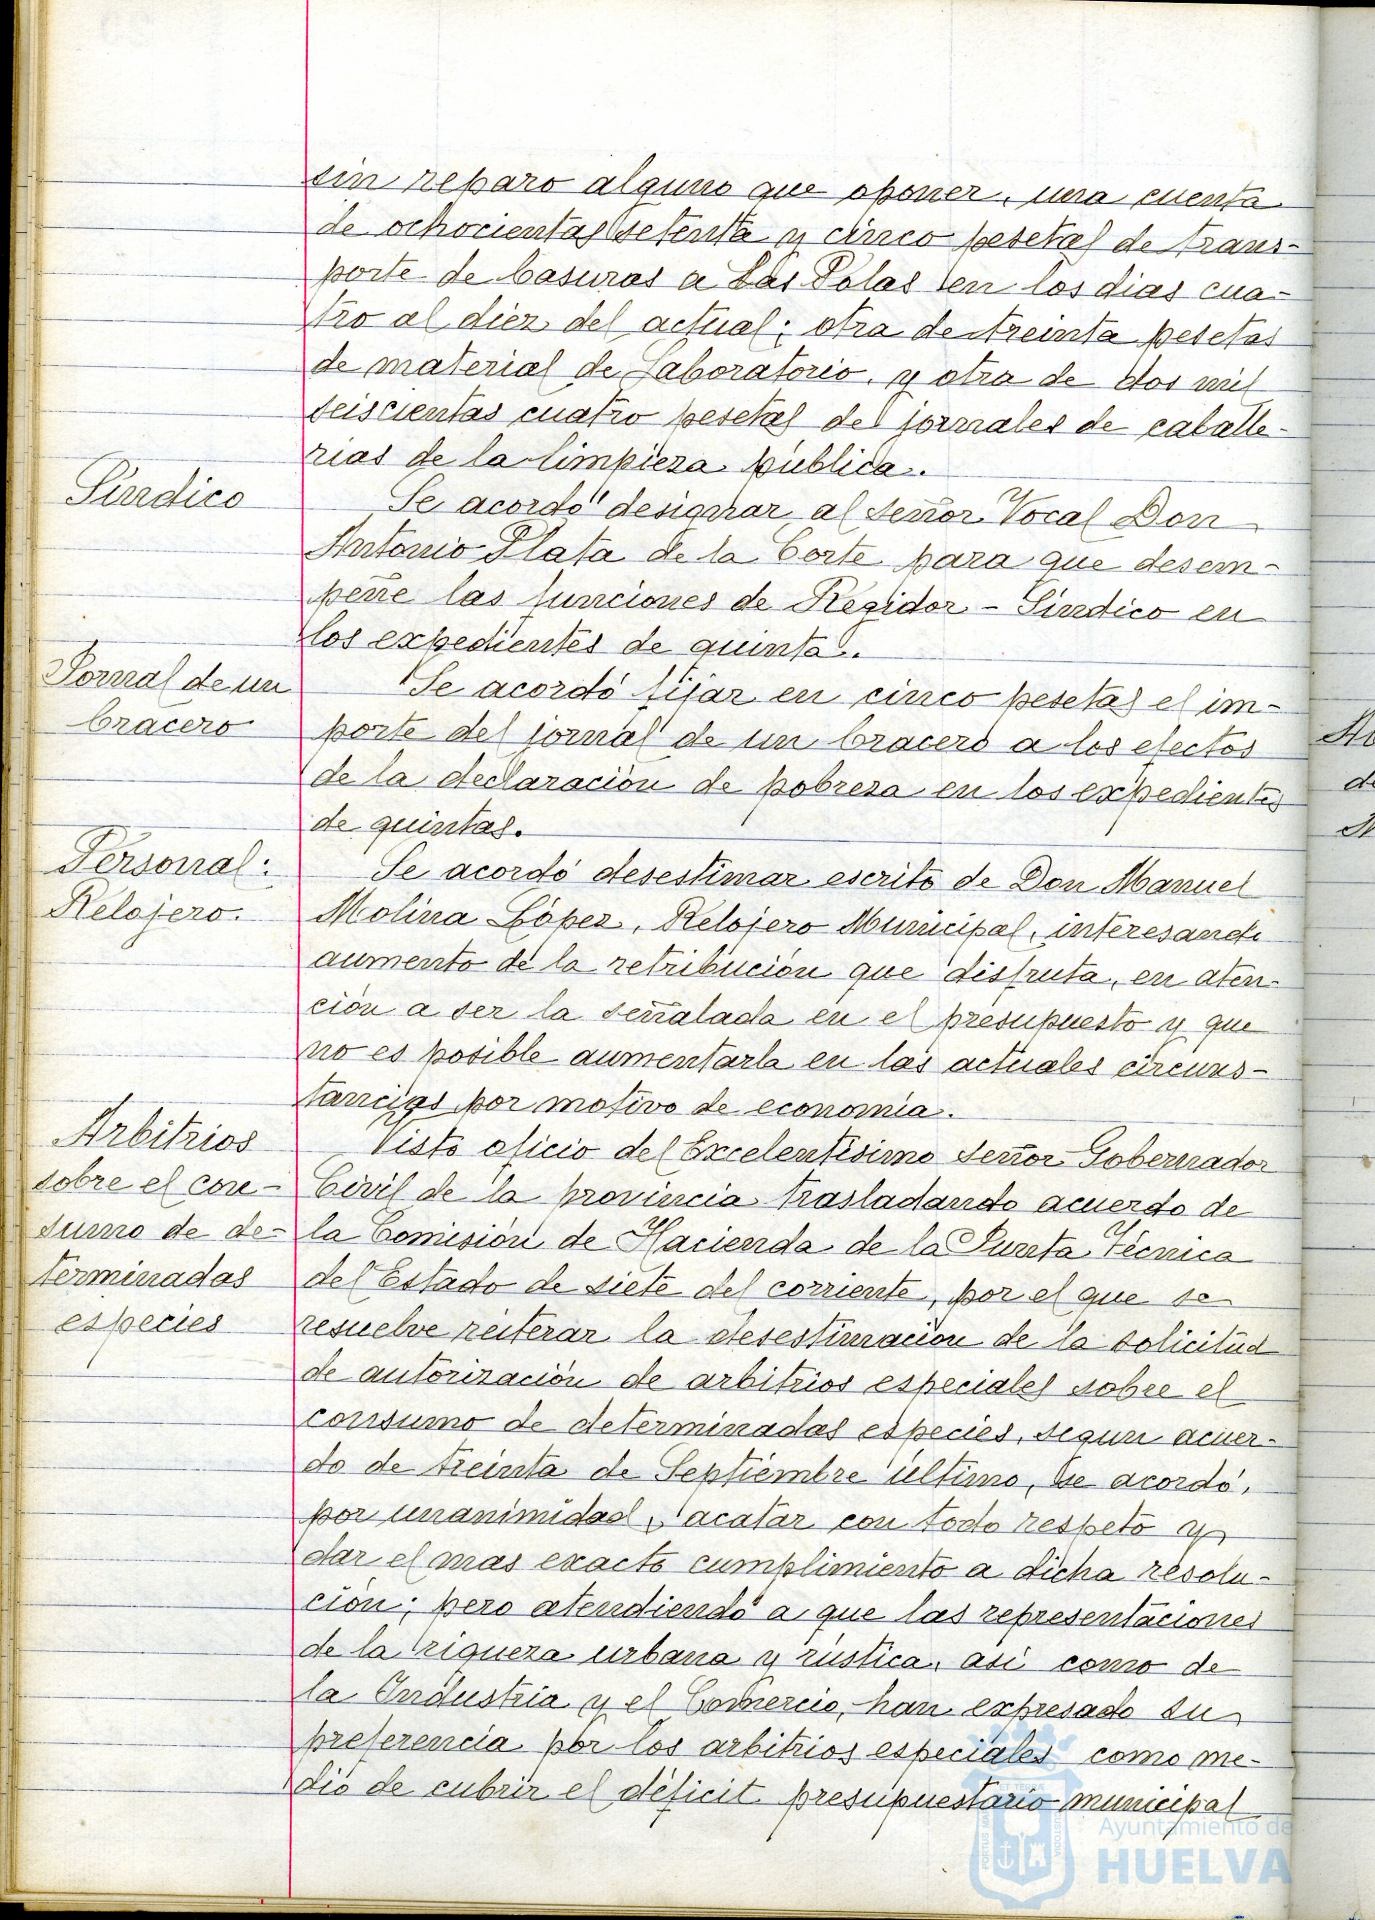 sin reparo alguno que oponer, una cuenta
de ochocientas setenta y cinco pesetas de trans-
porte de basuras a Las Polas en los dias cua-
tro al diez del actual; otra de treinta pesetas
de material de Laboratorio, y otra de dos mil
seiscientas cuatro pesetas de jornales de caballe-
rias de la limpieza pública.
Síndico
Se acordó designar al señor Vocal Don
Antonio Plata de la Corte para que desem-
peñe las funciones de Regidor - Síndico en
los expedientes de quinta.
Jornal de un
bracero
Se acordó fijar en cinco pesetas el im-
porte del jornal de un bracero a los efectos
de la declaración de pobreza en los expedientes
de quintas.
Personal:
Relojero.
Se acordó desestimar escrito de Don Manuel
Molina López, Relojero Municipal, interesando
aumento de la retribución que disfruta, en aten-
ción a ser la señalada en el presupuesto y que
no es posible aumentarla en las actuales circuns-
tancias por motivo de economía.
Arbitrios
sobre el con-
sumo de de-
terminadas
especies
Visto oficio del Excelentísimo señor Gobernador
Civil de la provincia trasladando acuerdo de
la Comisión de Hacienda de la Junta Técnica
del Estado de siete del corriente, por el que se
resuelve reiterar la desestimación de la solicitud
de autorización de arbitrios especiales sobre el
consumo de determinadas especies, segun acuer-
do de treinta de Septiembre último, se acordó,
por unanimidad, acatar con todo respeto y
dar el mas exacto cumplimiento a dicha resolu-
ción; pero atendiendo a que las representaciones
de la riqueza urbana y rústica, asi como de
la Industria y el Comercio, han expresado su
preferencia por los arbitrios especiales como me-
dio de cubrir el déficit presupuestario municipal
Ayuntamiento de
HUELVA